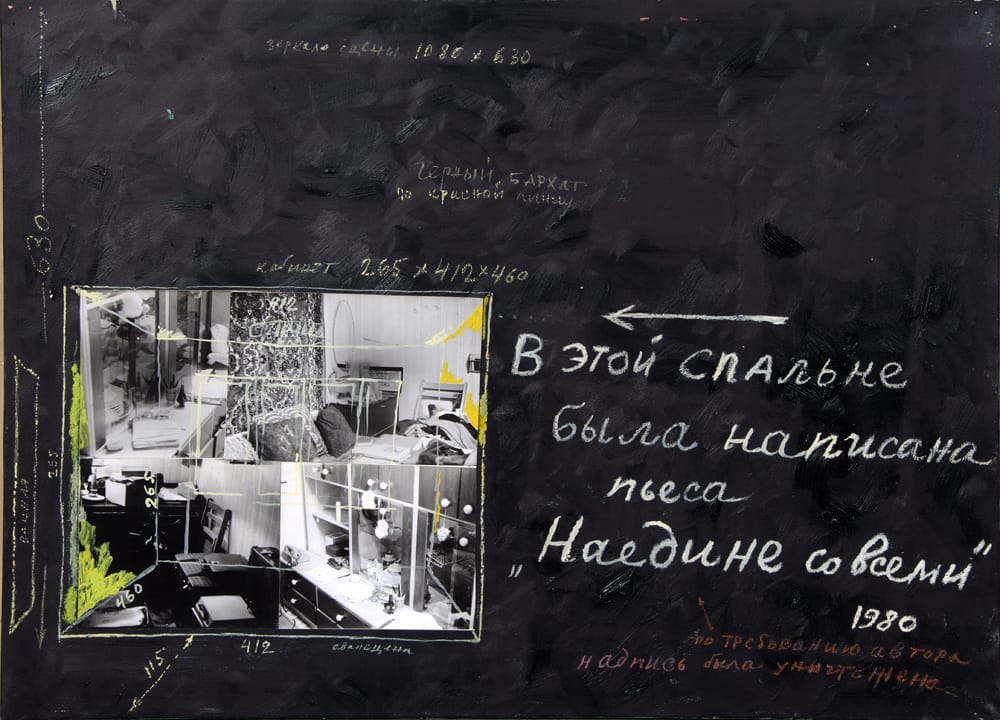 зеркало сцены 1080 x 630
Черный бархат
по красной линии
630
кабинет 265 x 412 x 460
412
спальня
В этой спальне
была написана
пьеса
„Наедине со всеми“
1980
265
265
460
412
авансцена
115
по требованию автора
надпись была уничтожена